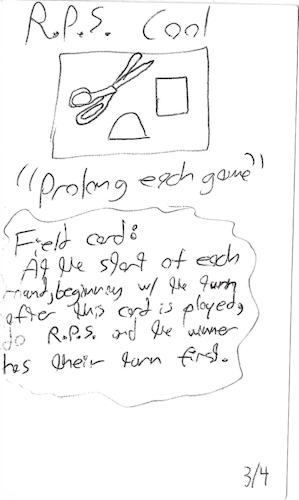 R.P.S. Cool
"Prolong each game"
Field card:
At the start of each
round, beginning w/ the turn
after this card is played,
do R.P.S. and the winner
has their turn first.
3/4